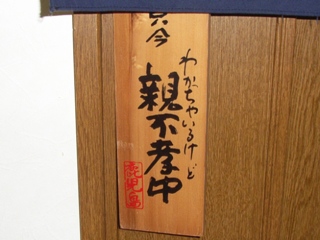 わかっちゃいるけど
只今
親不孝中
鹿児島